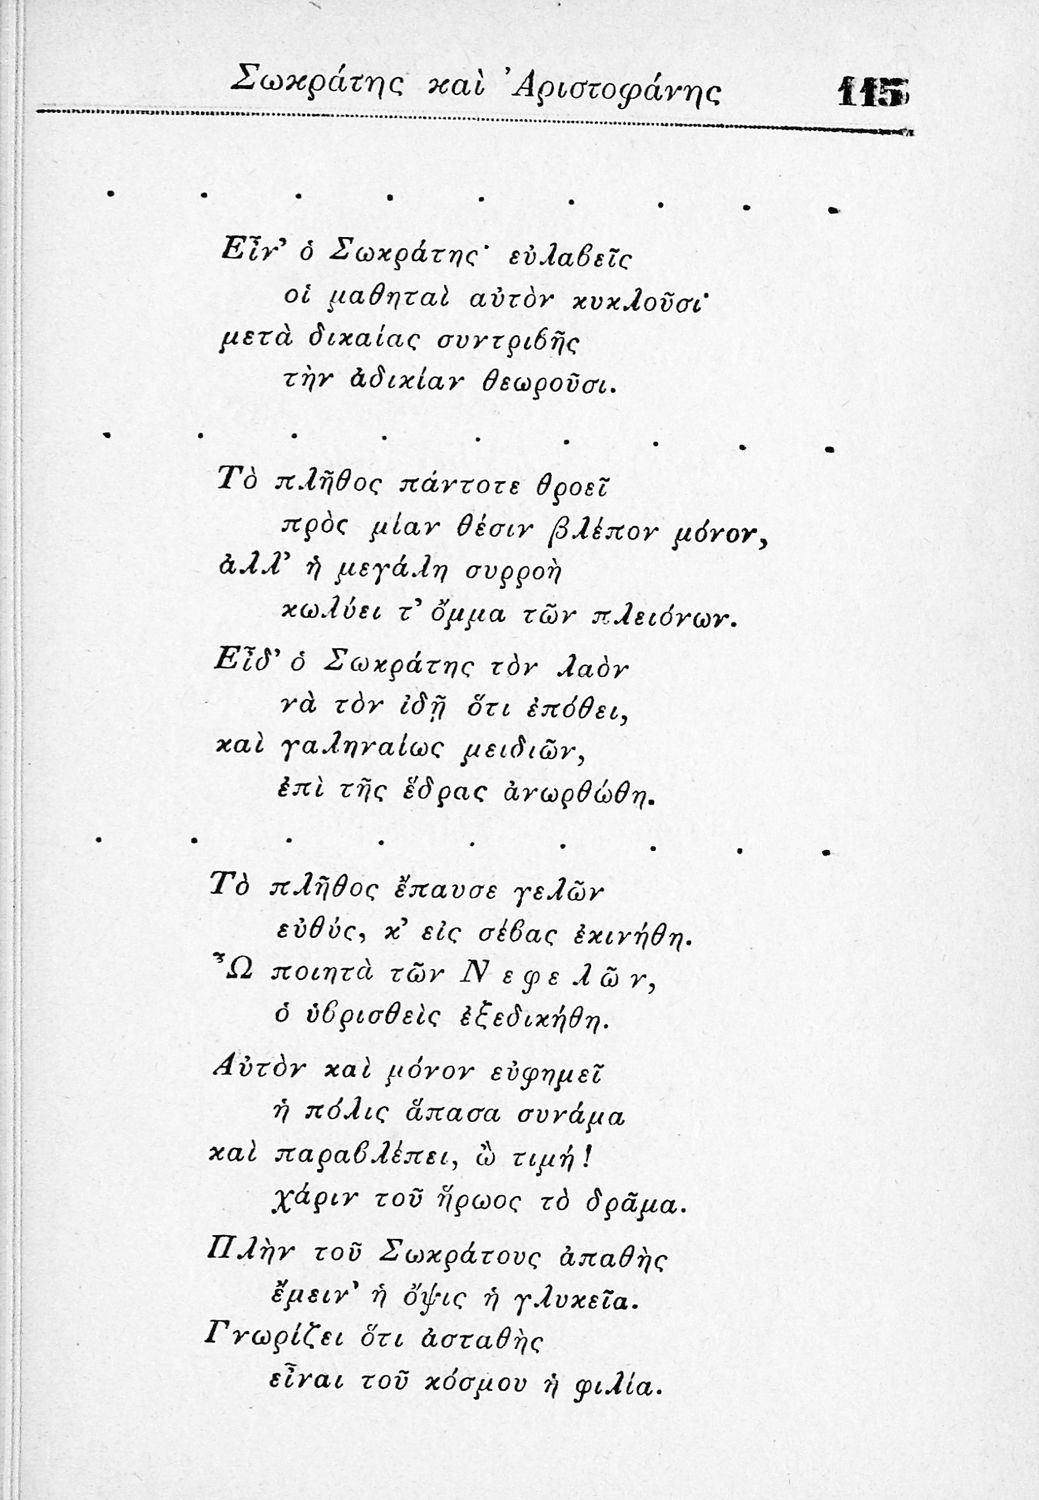 Σωκράτης καὶ Ἀριστοφάνης 115
. . . . . . . . .
Εἶν' ὁ Σωκράτης· εὐλαβεῖς
οἱ μαθηταὶ αὐτὸν κυκλοῦσι·
μετὰ δικαίας συντριβῆς
τὴν ἀδικίαν θεωροῦσι.
. . . . . . . . .
Τὸ πλῆθος πάντοτε θροεῖ
πρὸς μίαν θέσιν βλέπον μόνον,
ἀλλ' ἡ μεγάλη συρροὴ
κωλύει τ' ὄμμα τῶν πλειόνων.
Εἶδ' ὁ Σωκράτης τὸν λαὸν
νὰ τὸν ἰδῇ ὅτι ἐπόθει,
καὶ γαληναίως μειδιῶν,
ἐπὶ τῆς ἕδρας ἀνωρθώθη.
. . . . . . . . .
Τὸ πλῆθος ἔπαυσε γελῶν
εὐθύς, κ' εἰς σέβας ἐκινήθη.
Ὦ ποιητὰ τῶν Νεφελῶν,
ὁ ὑβρισθεὶς ἐξεδικήθη.
Αὐτὸν καὶ μόνον εὐφημεῖ
ἡ πόλις ἅπασα συνάμα
καὶ παραβλέπει, ὢ τιμή!
χάριν τοῦ ἥρωος τὸ δρᾶμα.
Πλὴν τοῦ Σωκράτους ἀπαθὴς
ἔμειν' ἡ ὄψις ἡ γλυκεῖα.
Γνωρίζει ὅτι ἀσταθὴς
εἶναι τοῦ κόσμου ἡ φιλία.